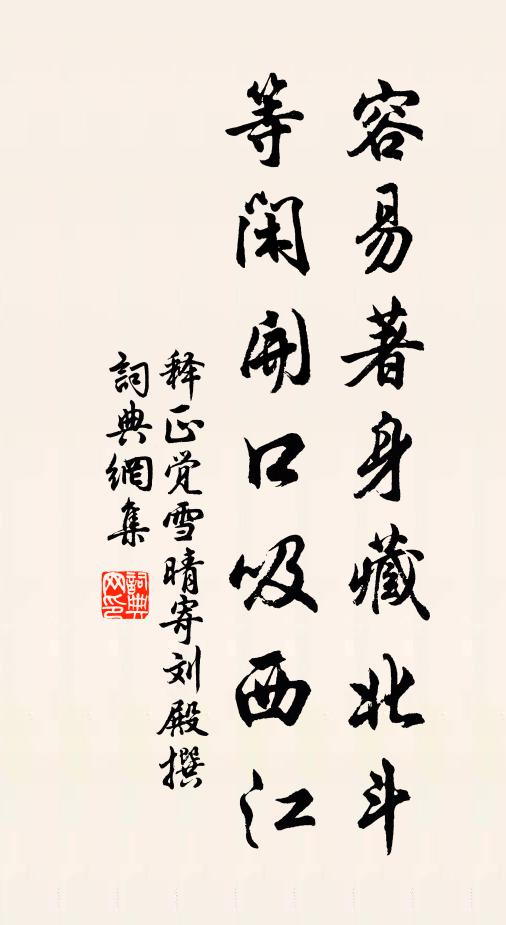 容易著身藏北斗
等闲開口吸西江
释正觉雪晴寄刘殿撰
詞典網集
詞典网印